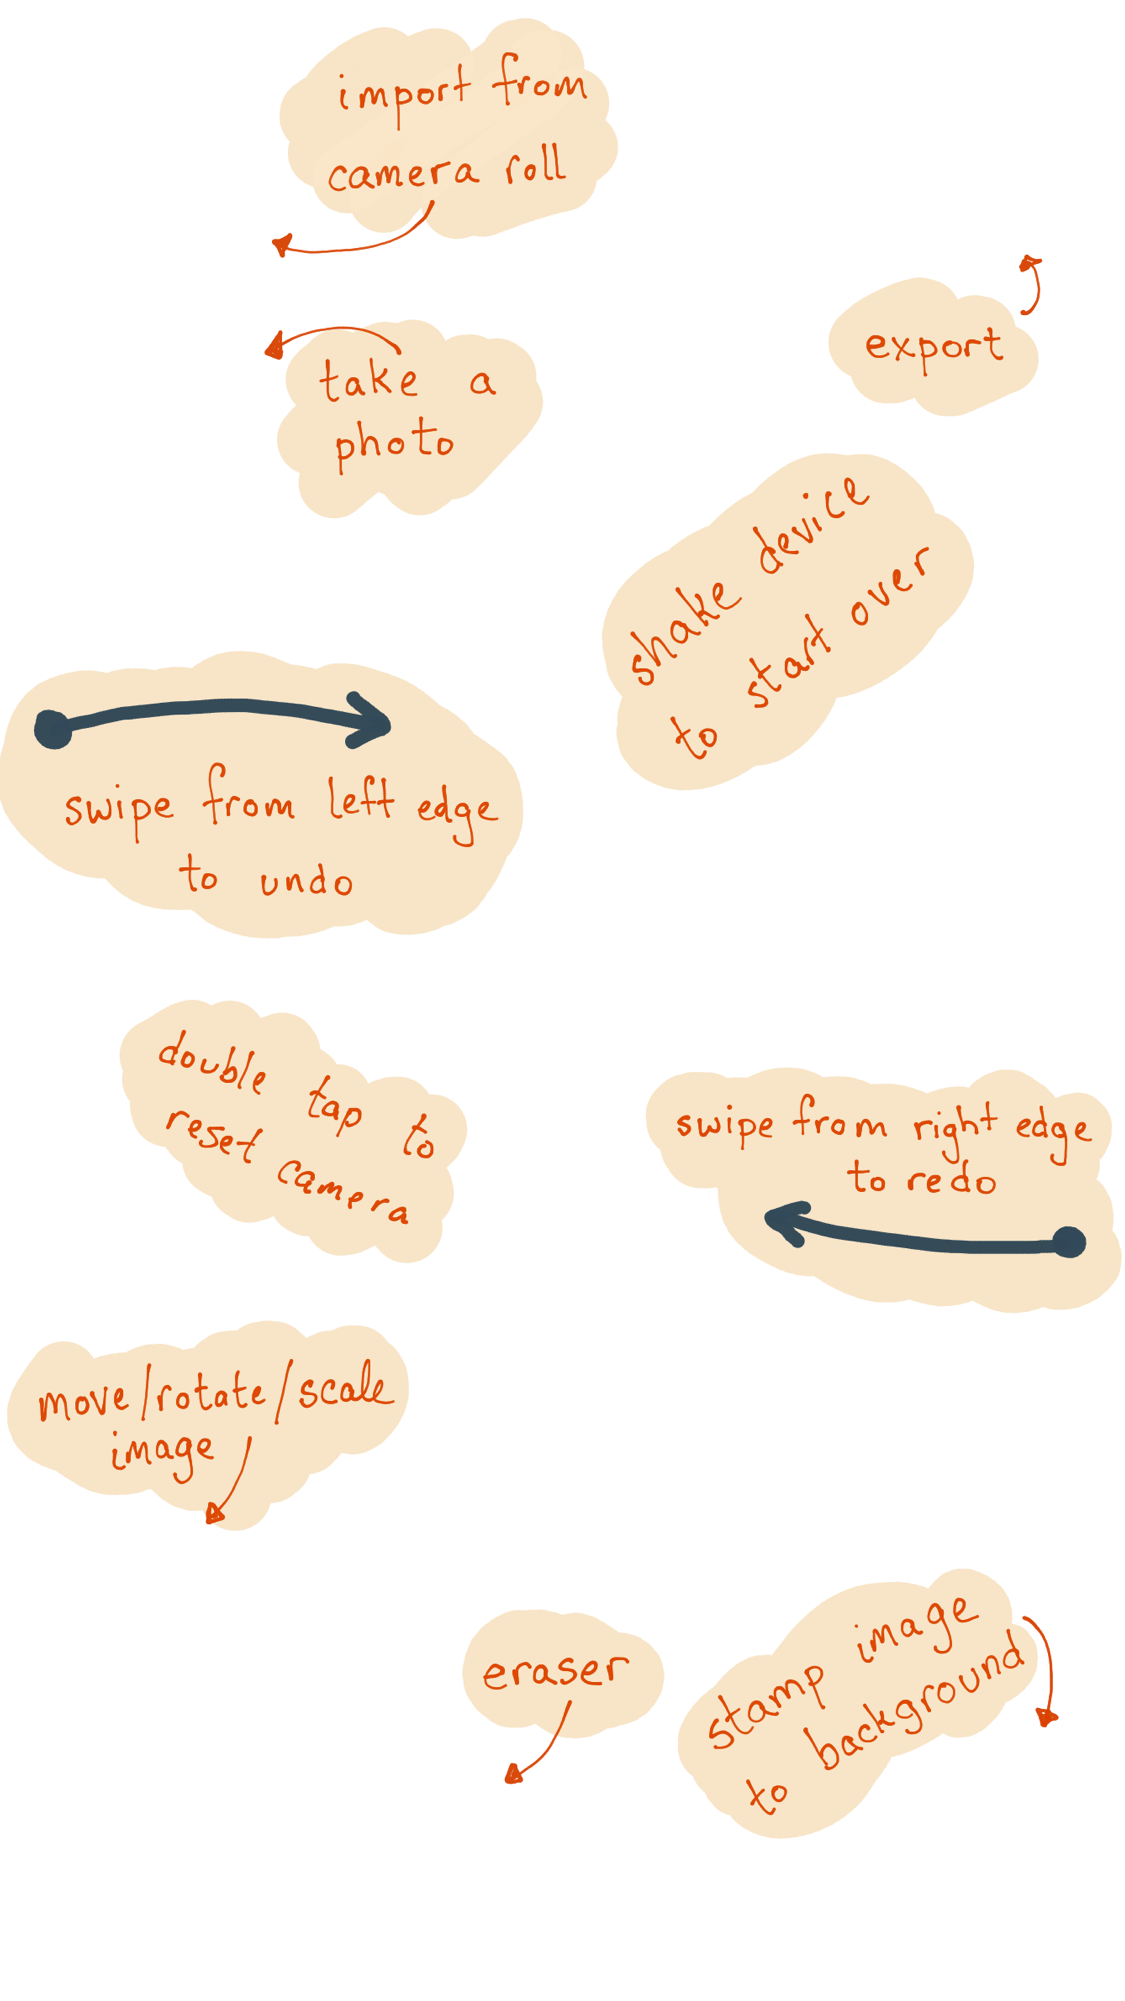 import from
camera roll
export
take a
photo
shake device
to start over
swipe from left edge
to undo
double tap to
reset camera
swipe from right edge
to redo
move/rotate/scale
image
eraser
stamp image
to background